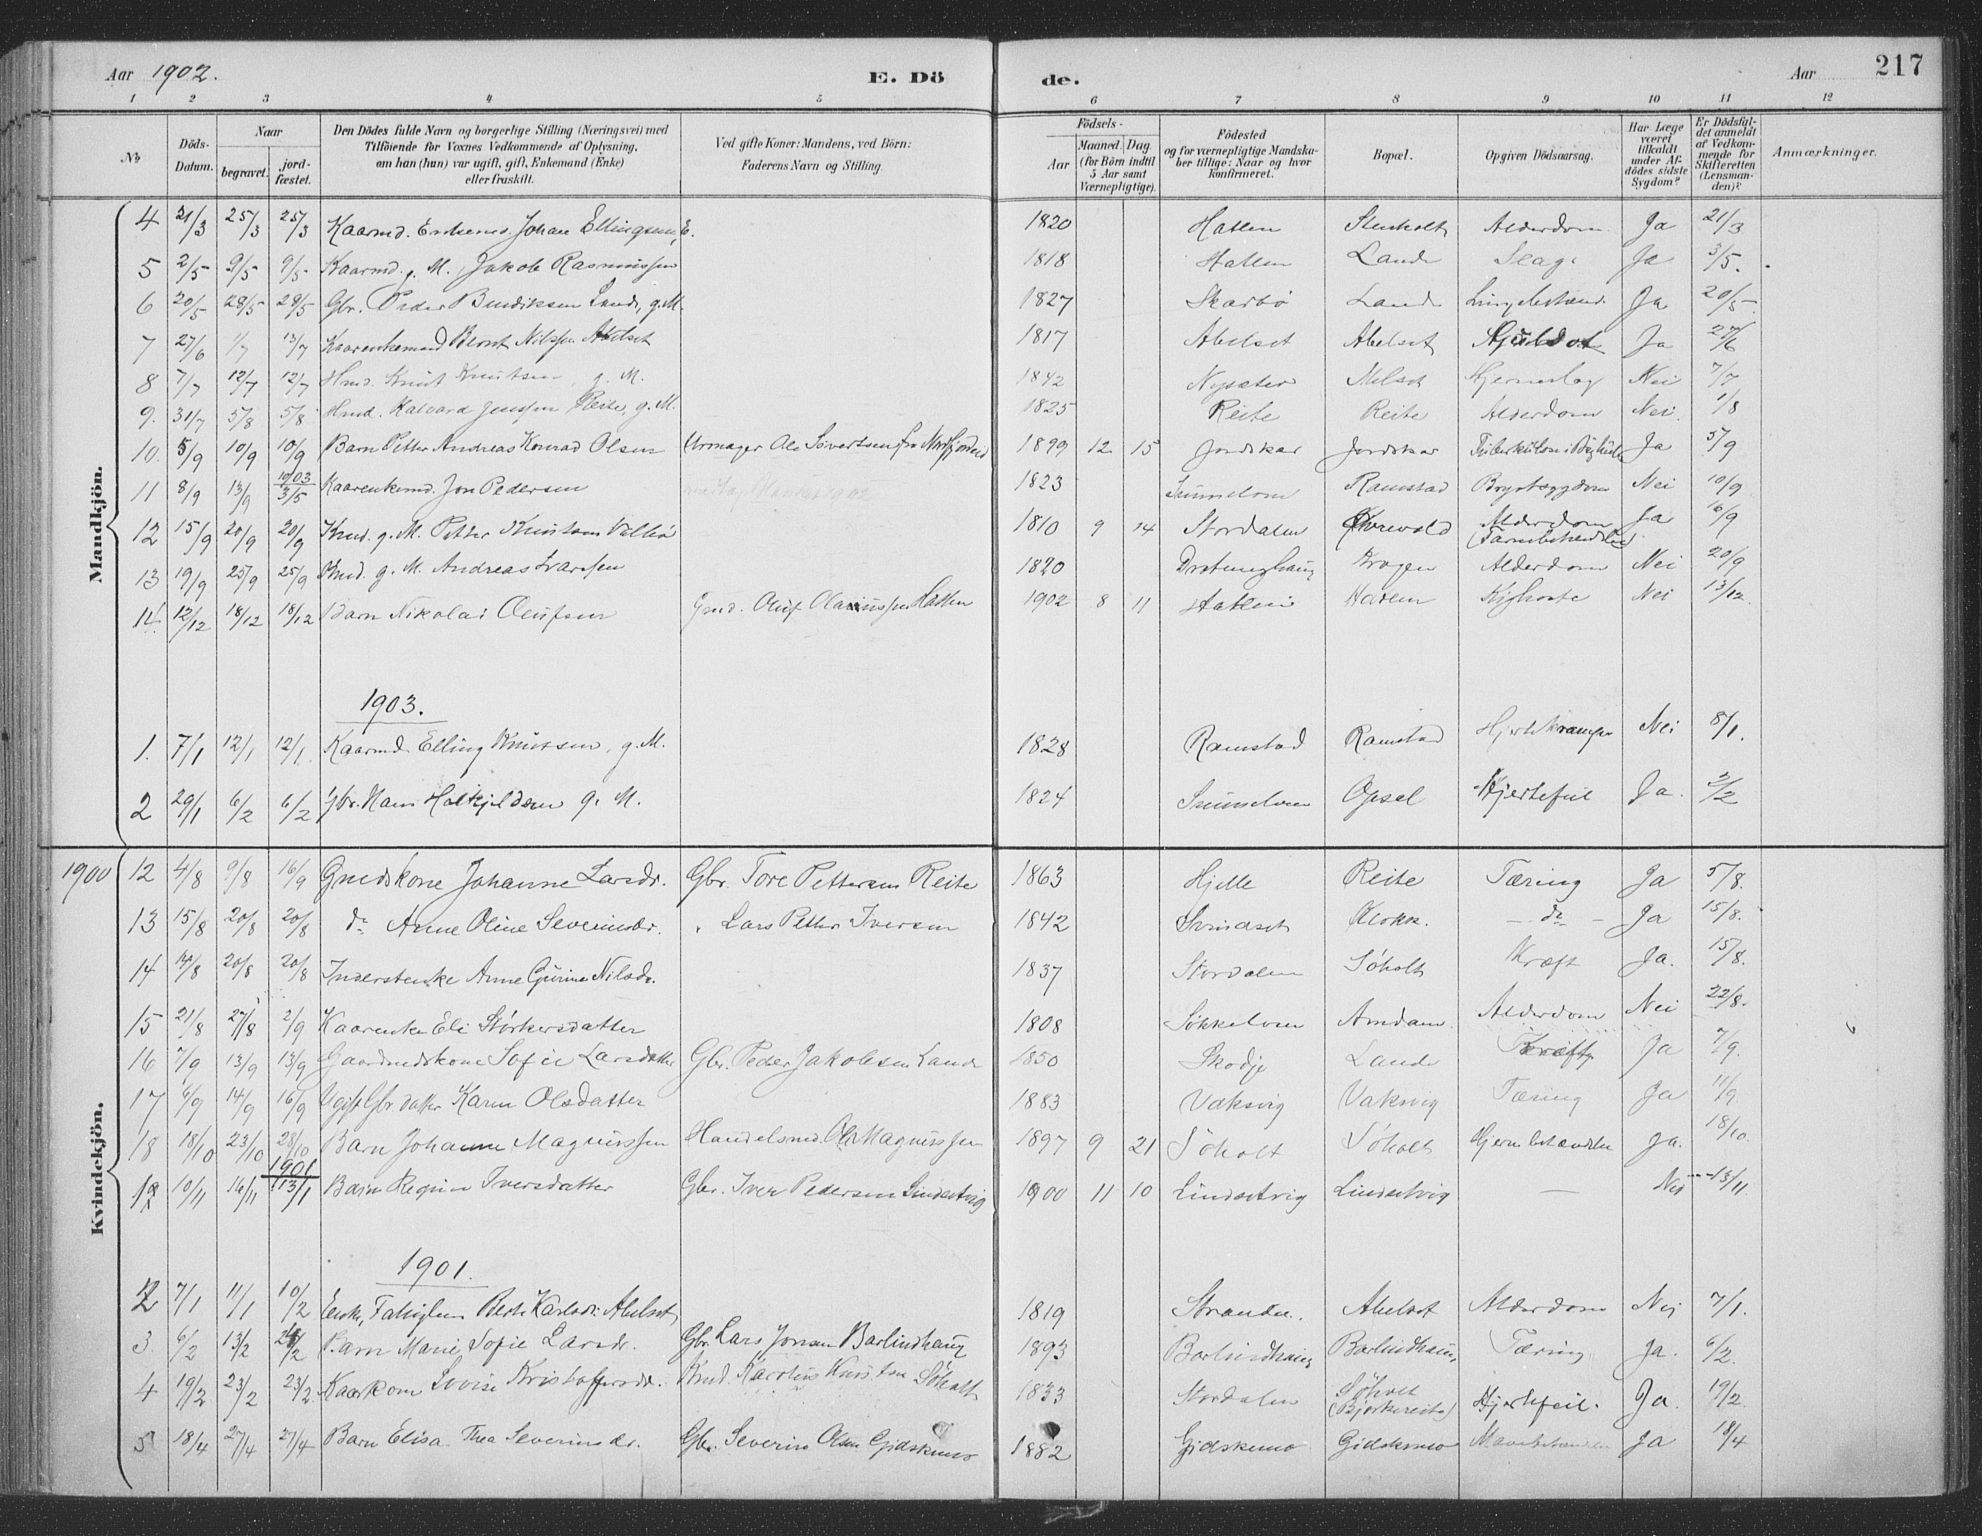 Aar 1902. E. Dö de. Aar 217
1 2 3 4 5 6 7 8 9 10 11 12
No Döds-Datum. Naar begravet. jord-fæstet. Den Dödes fulde Navn og borgerlige Stilling (Næringsvei) med Tilföiende for Voxnes Vedkommende af Oplysning, om han (hun) var ugift, gift, Enkemand (Enke) eller fraskilt. Ved gifte Koner: Mandens, ved Börn: Faderens Navn og Stilling. Födsels- Aar Maaned. Dag. (for Börn indtil 5 Aar samt Værnepligtige). Födested og for værnepligtige Mandska-ber tillige: Naar og hvor konfirmeret. Bopæl. Opgiven Dödsaarsag. Har Læge været tilkaldt under Af-dödes sidste Sygdom? Er Dödsfal-det anmeldt af Vedkom-mende for Skifteretten (Lensman-den)? Anmærkninger.
Mandkjön.
4 21/3 25/3 25/3 Kaarmd. Enkemd. Johan Ellingsen, E. 1820 Hatlen Stenholt Alderdom Ja 21/3
5 2/5 9/5 9/5 Kaarmd. g. M. Jakob Rasmussen 1818 Hatlen Lande Slag Ja 3/5.
6 20/5 28/5 28/5 Gbr. Peder Bendiksen Lande, g. M. 1827 Skarbø Lande Lungebetænd. Ja 20/5
7 27/6 1/7 13/7 Kaarenkemand Bernt Nilssen Abelset 1817 Abelset Abelset Ja 27/6
8 7/7 12/7 12/7 Hmd. Knut Knutsen, g. M. 1842 Nysæter Melset Hjerneslag Nei 7/7
9. 31/7 5/8 5/8 Hmd. Halvard Jenssen Reite, g. M. 1825 Reite Reite Alderdom Nei. 1/8
10. 5/9 10/9 10/9 Barn Petter Andreas Konrad Olsen Urmager Ole Sivertsen fra Nordfjordeid 1899 12 15 Jordskar Jordskar Ja 5/9
11 8/9 13/9 1903 3/5 Kaarenkemd. Jon Pedersen 1823 Sunnelven Ramstad Brystsygdom Nei 10/9
12 15/9 20/9 20/9 Kmd. g. M. Petter Knutsen Vallø 1810 9 14 Stordalen Alderdom (Tarmbetændelse) Ja 16/9
13 19/9 25/9 25/9 Kmd. g. M. Andreas Ivarsen 1820 Drotninghaug Krogen Alderdom Nei 20/9
14 12/12 18/12 18/12 Barn Nikolai Olufsen Gmd. Oluf Olariussen Hatlen 1902 8 11 Hatlen Hatlen Kighoste Nei 13/12
1903.
1. 7/1 12/1 12/1. Kaarmd. Elling Knutsen, g. M. 1828 Ramstad Ramstad Hjertekrampe Nei 8/1.
2 29/1 6/2 6/2 Gbr. Hans g. M. 1824 Sunnelven Opsal Hjertefeil Ja. 2/2
Kvindekjön.
1900 12 4/8 9/8 16/9 Gmdskone Johanne Larsdr. Gbr. Tore Pettersen Reite 1863 Hjelle Reite Tæring Ja 5/8.
13 15/8 20/8 20/8 do Anne Oline Severinsdr. " Lars Petter Iversen 1842 Svindset Klokk. - do - Ja 15/8.
14 14/8 20/8 20/8 Inderstenke Anne Gurine Nilsdr. 1837 Stordalen Søholt Kræft Ja. 15/8.
15 21/8 27/8 2/9 Kaarenke Eli Størkersdatter 1808 Søkkelven Amdam Alderdom Nei 22/8.
16 7/9 13/9 13/9 Gaardmdskone Sofie Larsdatter Gbr. Peder Jakobsen Lande 1850 Skodje Lande Kræft Ja 7/9.
17 6/9 14/9 16/9 Ugift Gbr. datter Karen Olsdatter 1883 Vaksvig Vaksvig Tæring Ja 11/9.
18 18/10 23/10 28/10 Barn Johanne Magnussen Handelsmd. Ole Magnussen 1897 9 21 Søholt Søholt Hjernebetændelse Ja. 18/10.
19 10/11 16/11 1901 13/1 Barn Regine Iversdatter Gbr. Iver Pedersen Lindsetvig 1900 11 10 Lindsetvig Lindsetvig — Nei 13/11.
1901.
2 7/1 11/1 10/2 Enke, Berte Karlsdr. Abelset 1819 Stranden. Abelset Alderdom Nei 7/1.
3. 6/2 13/2 24/2 Barn Marie Sofie Larsdr. Gbr. Lars Jonsen Barlindhaug 1893 Barlindhaug Barlindhaug Tæring Ja. 6/2.
4 19/2 23/2 23/2. Kaarkone Lovise Kristoffersdr. Kmd. Karolus Knutsen Søholt 1833 Stordalen Søholt (Bjørkereite) Hjertefeil. Ja. 19/2.
5 18/4 27/4 27/4 Barn Elisa Thea Severinsdr. Gbr. Severin Olsen Gidskemo 1882 Gidskemo Gidskemo Mavebetændelse Ja 18/4